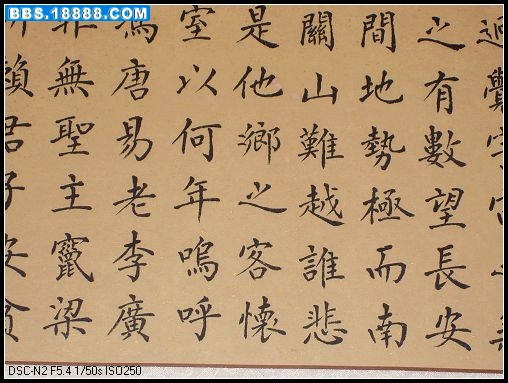 BBS.18888.COM
迥覺宇宙之無
之有數望長安
間地勢極而南
關山難越誰悲
是他鄉之客懷
室以何年嗚呼
馮唐易老李廣
非無聖主竄梁
所賴君子安貧
DSC-N2 F5.4 1/50s ISO250